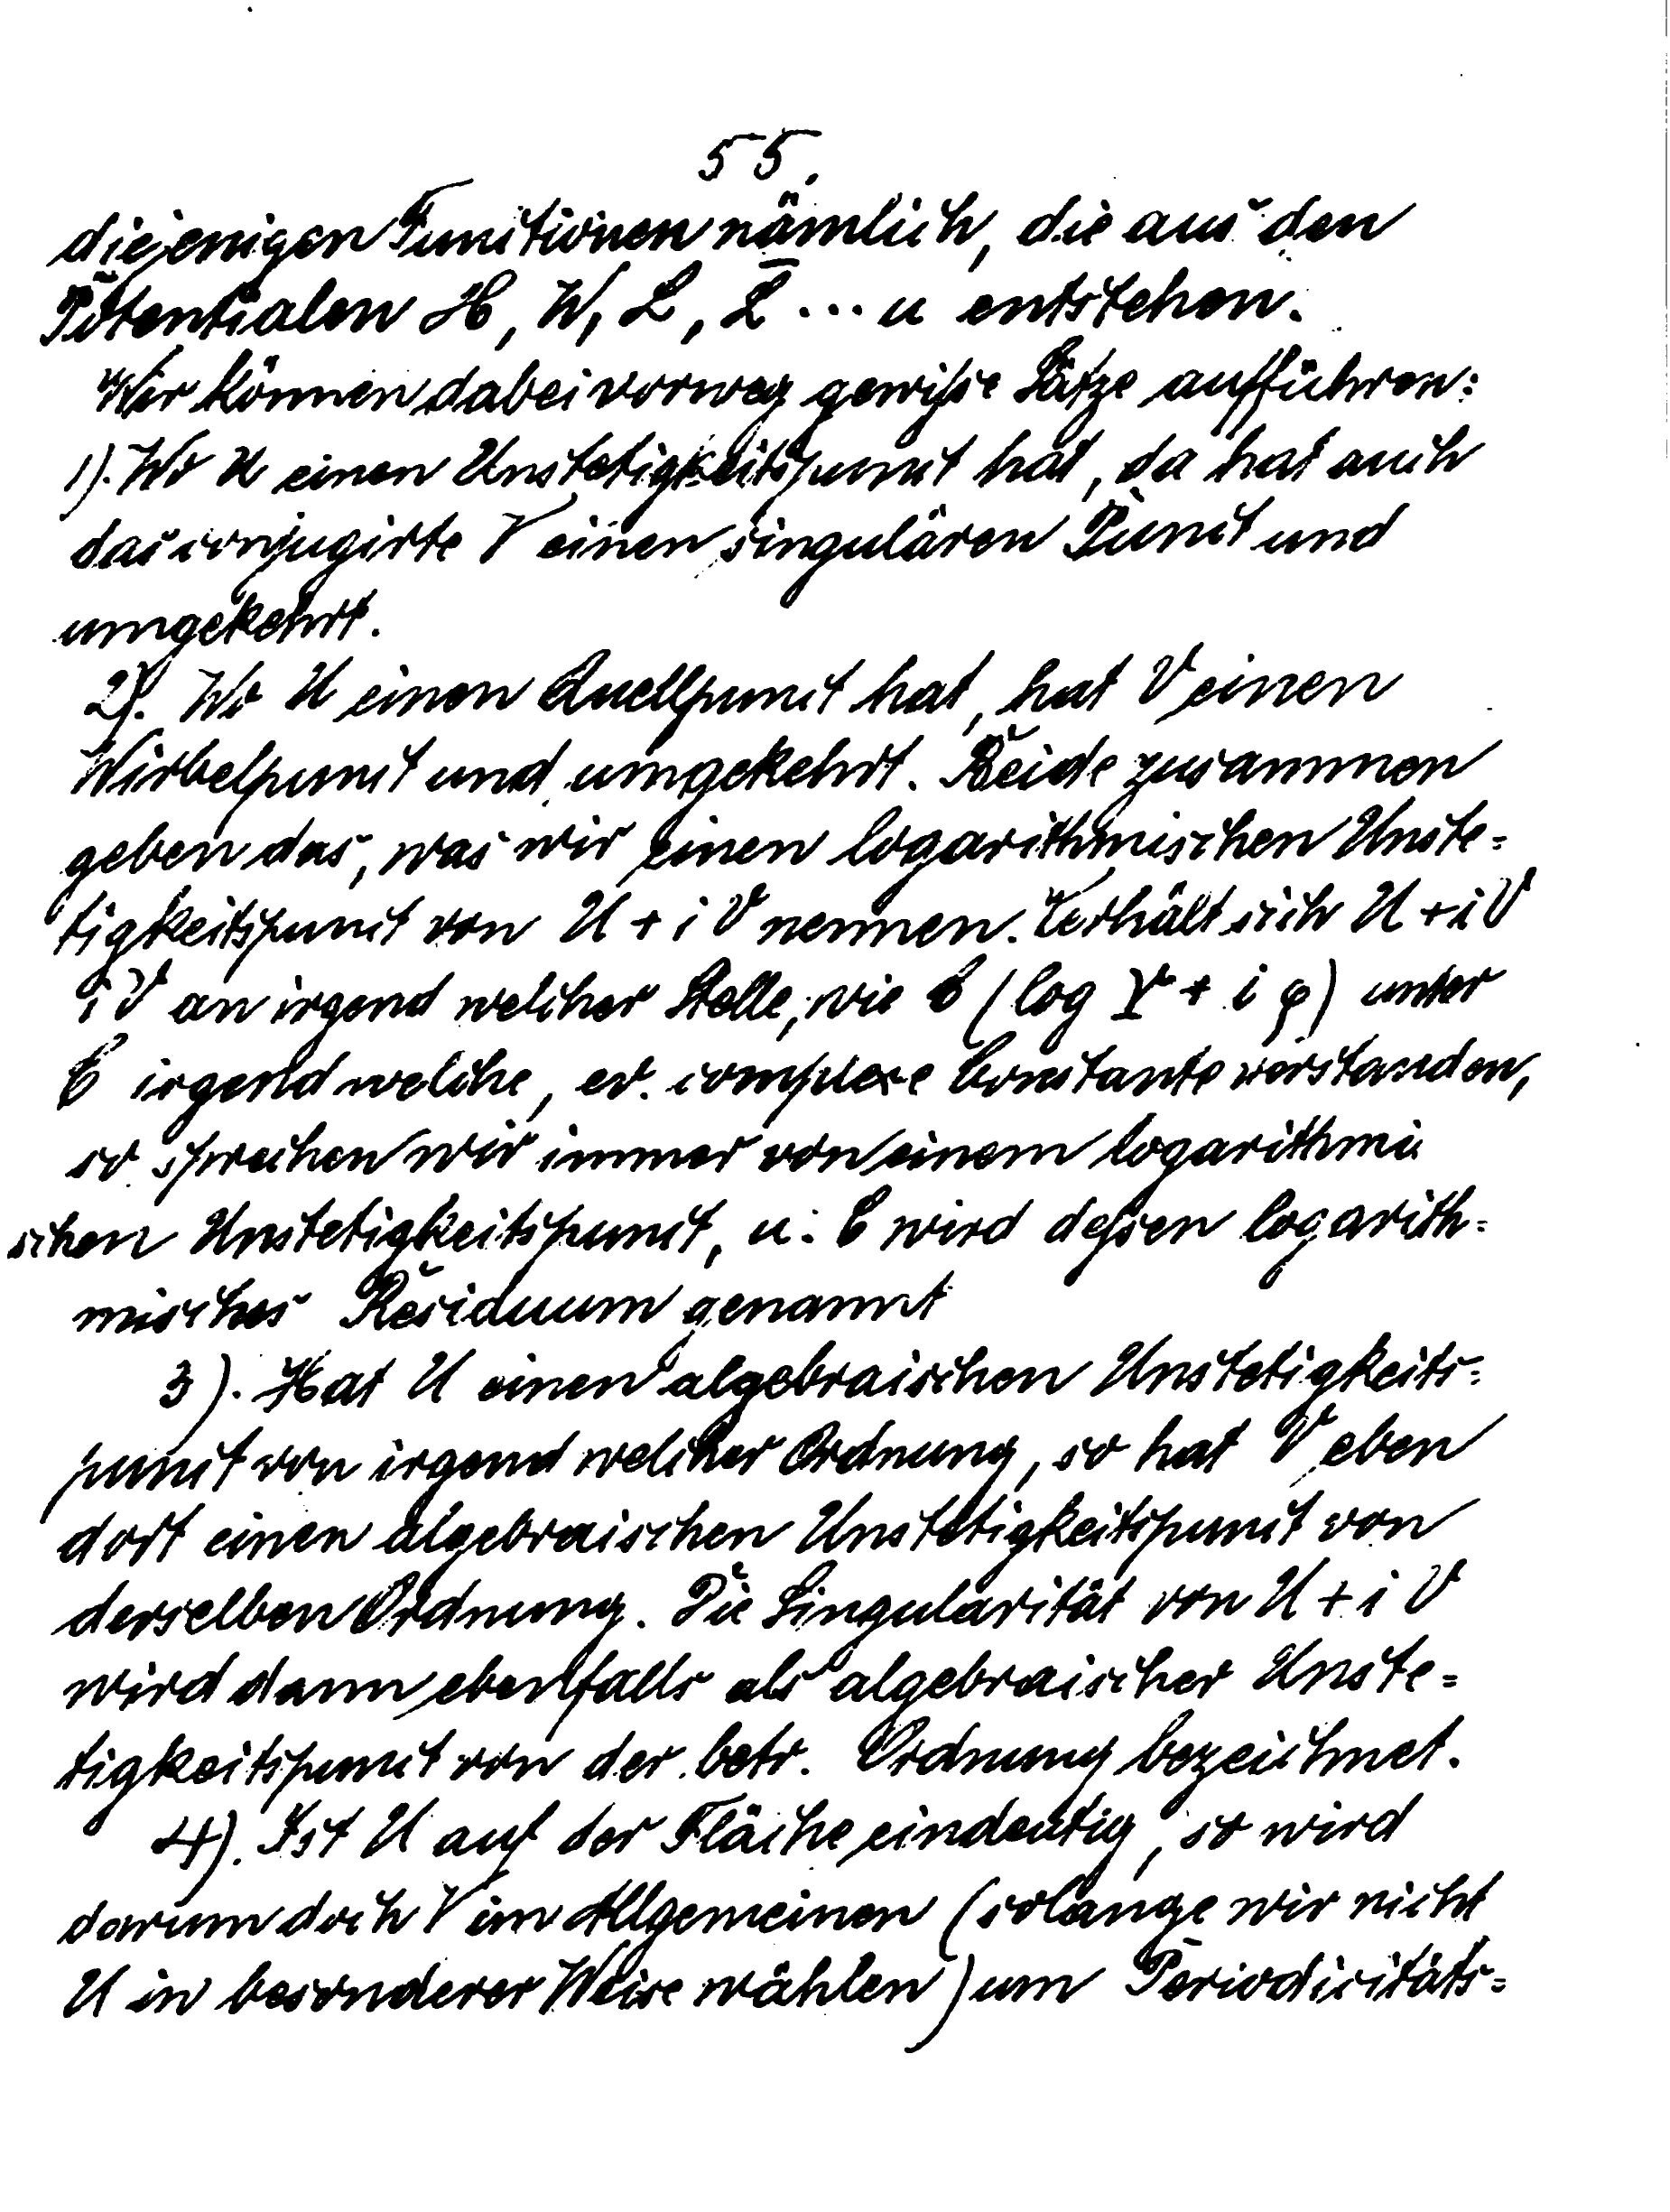 55.
diejenigen Functionen nämlich, die aus den
Potentialen H, W, L, L̄ ... u entstehen.
Wir können dabei vorweg gewisse Sätze aufführen:
1). Wo U einen Unstetigkeitspunct hat, da hat auch
das conjugirte V einen singulären Punct und
umgekehrt.
2). Wo U einen Quellpunct hat, hat V einen
Wirbelpunct und umgekehrt. Beide zusammen
geben das, was wir einen logarithmischen Unste=
tigkeitspunct von U + i V nennen. Verhält sich U + i V
i V an irgend welcher Stelle, wie C (log r + i φ) unter
C irgend welche, ev. complexe Constante verstanden,
so sprechen wir immer von einem logarithmi
schen Unstetigkeitspunct, u. C wird dessen logarith=
misches Residuum genannt
3). Hat U einen algebraischen Unstetigkeits=
punct von irgend welcher Ordnung, so hat V eben
dort einen algebraischen Unstetigkeitspunct von
derselben Ordnung. Die Singularität von U + i V
wird dann ebenfalls als algebraischer Unste=
tigkeitspunct von der betr. Ordnung bezeichnet.
4). Ist U auf der Fläche eindeutig, so wird
darum doch V im Allgemeinen (solange wir nicht
U in besonderer Weise wählen) um Periodicitäts=